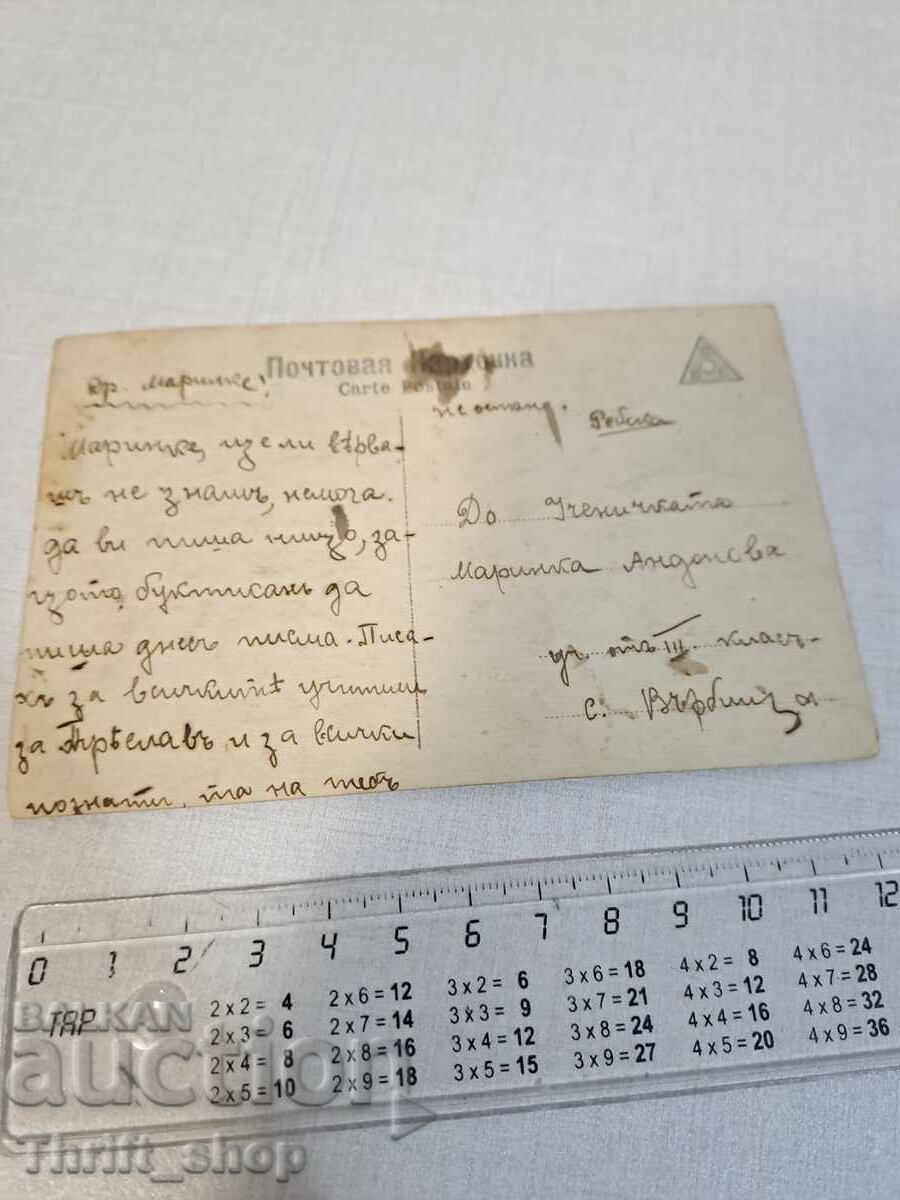 Почтовая Карточка
Carte Postale
др. Маринке!
Маринке, ице ли вѣрва-
шъ не знамъ, немога.
да ви пиша нищо, за-
щото, буктисанъ да
пиша днесъ писма. Писа-
хъ за всичкитѣ учители
за Прѣславъ и за всички
познати, та на тебъ
не остана.
До Ученичката
Маринка Андонова
отъ III. класъ.
с. Върбица
0 1 2 3 4 5 6 7 8 9 10 11 12
TAP
2 x 2 = 4
2 x 3 = 6
2 x 4 = 8
2 x 5 = 10
2 x 6 = 12
2 x 7 = 14
2 x 8 = 16
2 x 9 = 18
3 x 2 = 6
3 x 3 = 9
3 x 4 = 12
3 x 5 = 15
3 x 6 = 18
3 x 7 = 21
3 x 8 = 24
3 x 9 = 27
4 x 2 = 8
4 x 3 = 12
4 x 4 = 16
4 x 5 = 20
4 x 6 = 24
4 x 7 = 28
4 x 8 = 32
4 x 9 = 36
BALKAN
auction
Thrift_shop